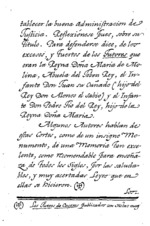 tablecer la buena administracion de
Justicia. Reflexionese pues, sobre su
titulo. Para defenderse dice, de los ex-
cesos, y fuertes de los Tutores que
eran la Reyna Doña Maria de Mo-
lina, Abuela del Joben Rey, el In-
fante Don Juan su Cuñado (hijo del
Rey Don Alonso el Sabio) y el Infan-
te Don Pedro Tio del Rey, hijo de la
Reyna Doña Maria.
Algunos Autores hablan de
estas Cortes, como de un insigne Mo-
numento, de una Memoria tan exce-
lente, como recomendable para enseñan-
za de todos los Siglos, por las saluda-
bles, y muy acertadas Leyes que en
ellas se hicieron.
Los